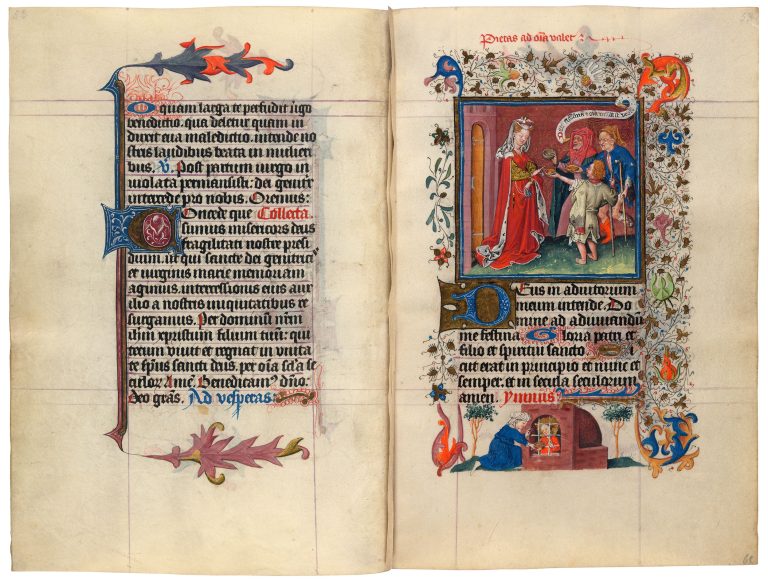 O quam larga te perfudit vgo
benedictio. qua deletur quam in
duxit eua maledictio. intende no
stris laudibus beata in mulieri
bus. V. Post partum virgo in
violata permansisti: dei genitrix
intercede pro nobis. Oremus:
Concede que Collecta.
sumus misericors deus
fragilitati nostre presi
dium. ut qui sancte dei genitricis
et virginis marie memoriam
agimus. intercessionis eius aux
ilio a nostris iniquitatibus re
surgamus. Per dominum nrm
ihm xpristum filium tuum: qui
tecum viuit et regnat in vnita
te spus sancti deus. per oia scla se
culor. Ame. Benedicam9 dno.
Deo gras. Ad vesperas:
Pietas ad oia valet
Deus in adiutorium
meum intende. Do
mine ad adiuuandu
me festina Gloria patri et
filio et spiritui sancto
Sicut erat in principio et nunc et
semper. et in secula seculorum
amen. Ymnus: